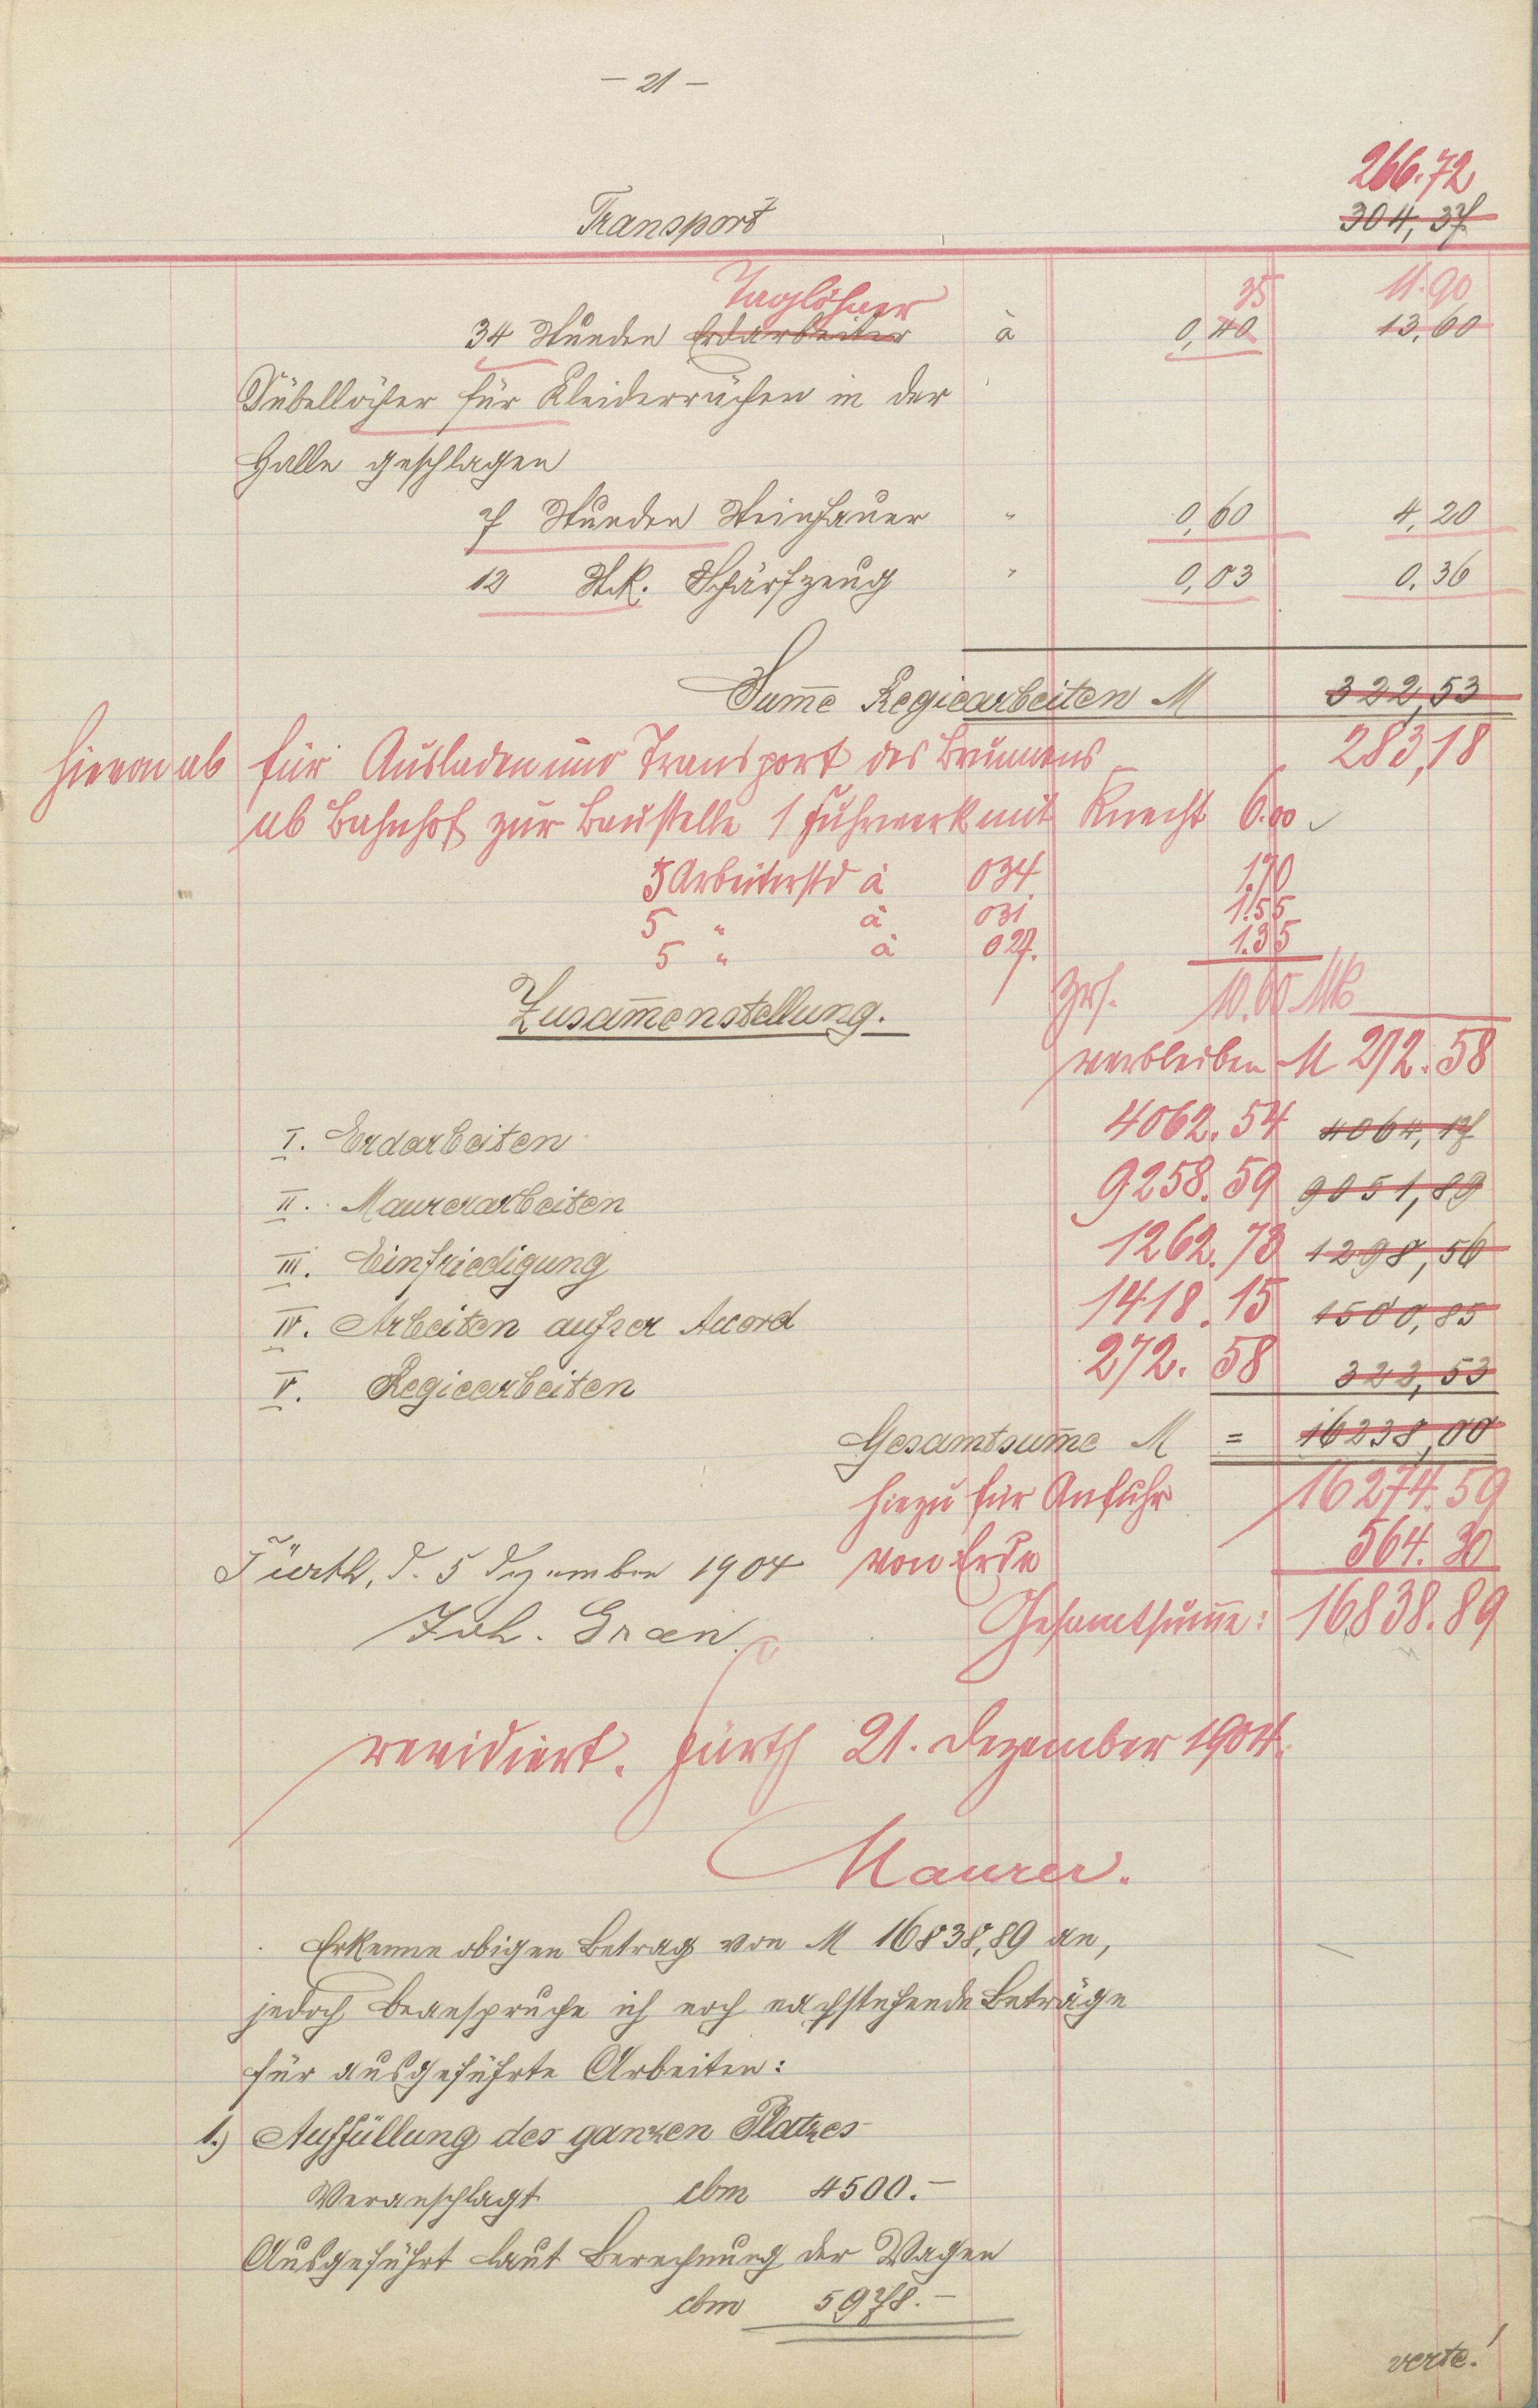 - 21 -
266.72
Transport 304,37
Taglöhner 35 11.90
34 Stunden Erdarbeiter à 0,40 13,60
Dübellöcher für Kleiderrächen in der
Halle geschlagen
7 Stunden Steinhauer " 0,60 4,20
12 Stk. Schärfzeug " 0,03 0,36
Sum̄e Regiearbeiten M 322,53
283,18
hievon ab für Ausladen und Transport des Brunnens
ab Bahnhof zur Baustelle 1 Fuhrwerk mit Knecht 6.00
5 Arbeiterstd à 034. 1.70
5 " à 031 1.55
5 " à 027. 1.35
Zusam̄enstellung.
10.60 Mk
verbleiben M 272.58
I. Erdarbeiten 4062.54 4064,17
II. Maurerarbeiten 9258.59 9051,89
III. Einfriedigung 1262.73 1298,56
IV. Arbeiten aufser Accord 1418.15 1500,85
V. Regiearbeiten 272.58 322,53
Gesamtsum̄e M = 16238,00
hiezu für Anfuhr 16274.59
von Erde 564.30
Fürth, d. 5 Dezember 1904
Gesamtsum̄e: 16838.89
Joh. Gran
revidiert. Fürth 21. Dezember 1904.
Maurer.
Erkenne obigen Betrag von M 16838,89 an,
jedoch beanspruche ich noch nachstehende Beträge
für ausgeführte Arbeiten:
1.) Auffüllung des ganzen Platzes
Veranschlagt cbm 4500.-
Ausgeführt laut Berechnung der Wagen
cbm 5978.-
verte!